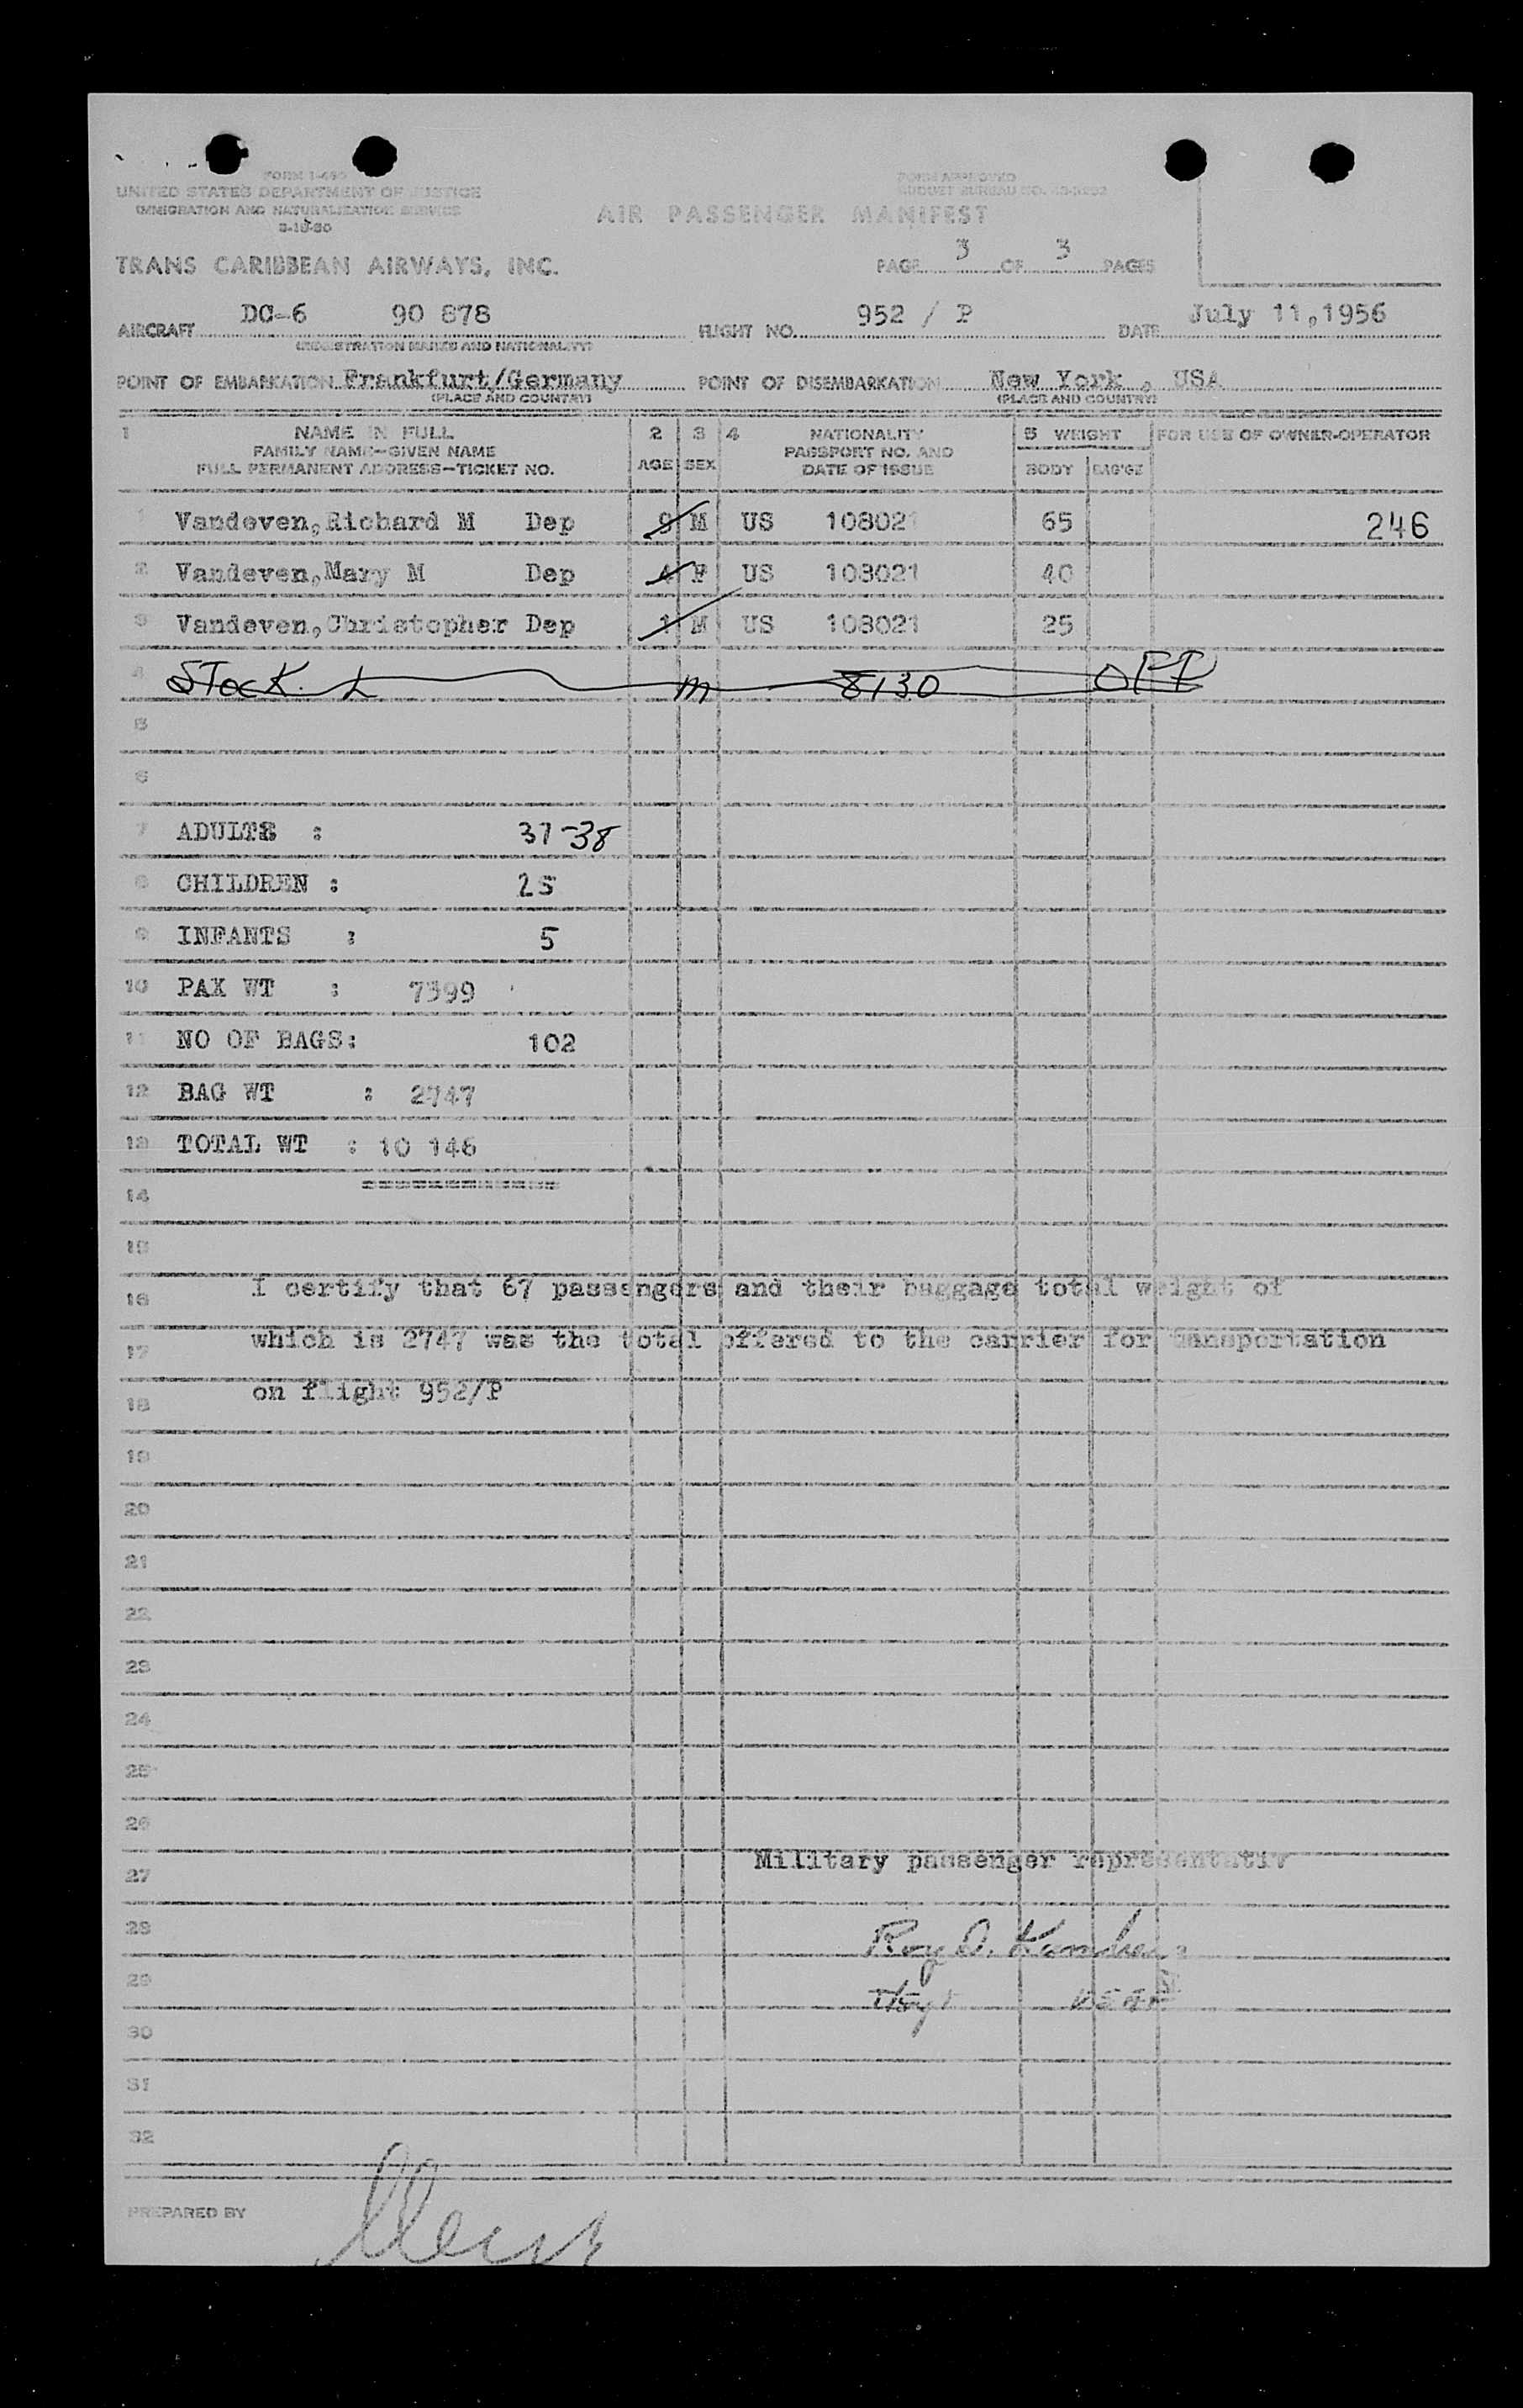 FORM I-490
UNITED STATES DEPARTMENT OF JUSTICE
IMMIGRATION AND NATURALIZATION SERVICE
FORM APPROVED
BUDGET BUREAU NO.
AIR PASSENGER MANIFEST
TRANS CARIBBEAN AIRWAYS, INC.
PAGE 3 OF 3 PAGES
AIRCRAFT DC-6 90 878 FLIGHT NO. 952 / P DATE July 11,1956
(REGISTRATION MARKS AND NATIONALITY)
POINT OF EMBARKATION Frankfurt/Germany POINT OF DISEMBARKATION New York , USA
(PLACE AND COUNTRY) (PLACE AND COUNTRY)
1 NAME IN FULL 2 3 4 NATIONALITY 5 WEIGHT FOR USE OF OWNER-OPERATOR
FAMILY NAME-GIVEN NAME PASSPORT NO. AND
FULL PERMANENT ADDRESS-TICKET NO. AGE SEX DATE OF ISSUE BODY BAG'GE
1 Vandeven,Richard M Dep 9 M US 108021 65 246
2 Vandeven,Mary M Dep 4 F US 108021 40
3 Vandeven,Christopher Dep 1 M US 108021 25
4 Stock. L m 8130 OFF
5
6
7 ADULTS : 37-38
8 CHILDREN : 25
9 INFANTS : 5
10 PAX WT : 7399
11 NO OF BAGS: 102
12 BAG WT : 2747
13 TOTAL WT : 10 146
=============
14
15
16 I certify that 67 passengers and their baggage total weight of
17 which is 2747 was the total offered to the carrier for tansportation
18 on flight 952/P
19
20
21
22
23
24
25
26
27 Military passenger representativ
28 Roy D.
29
30
31
32
PREPARED BY